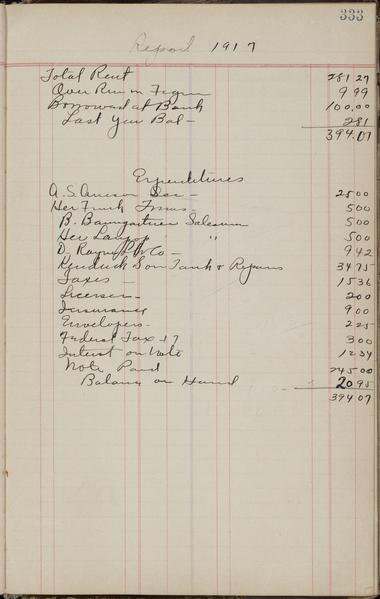 333
Report 1917
Total Rent 281 27
Over Run on 9 99
Borrowed at Bank 100.00
Last Year Bal - 281
394.07
Expenditures
A. S. Sec - 25 00
Her Frank 5 00
B. Baumgartner Salesman 5 00
Her " 5 00
D. Co - 9 42
Kendrick Son Tank & Repairs 34 75
Taxes - 15 36
Licenses - 2 00
Insurance 9 00
Envelopes - 2 25
Federal Tax 17 3 00
Interest on Note 12 34
Note Paid 245 00
Balance on Hand - 20 95
394 07